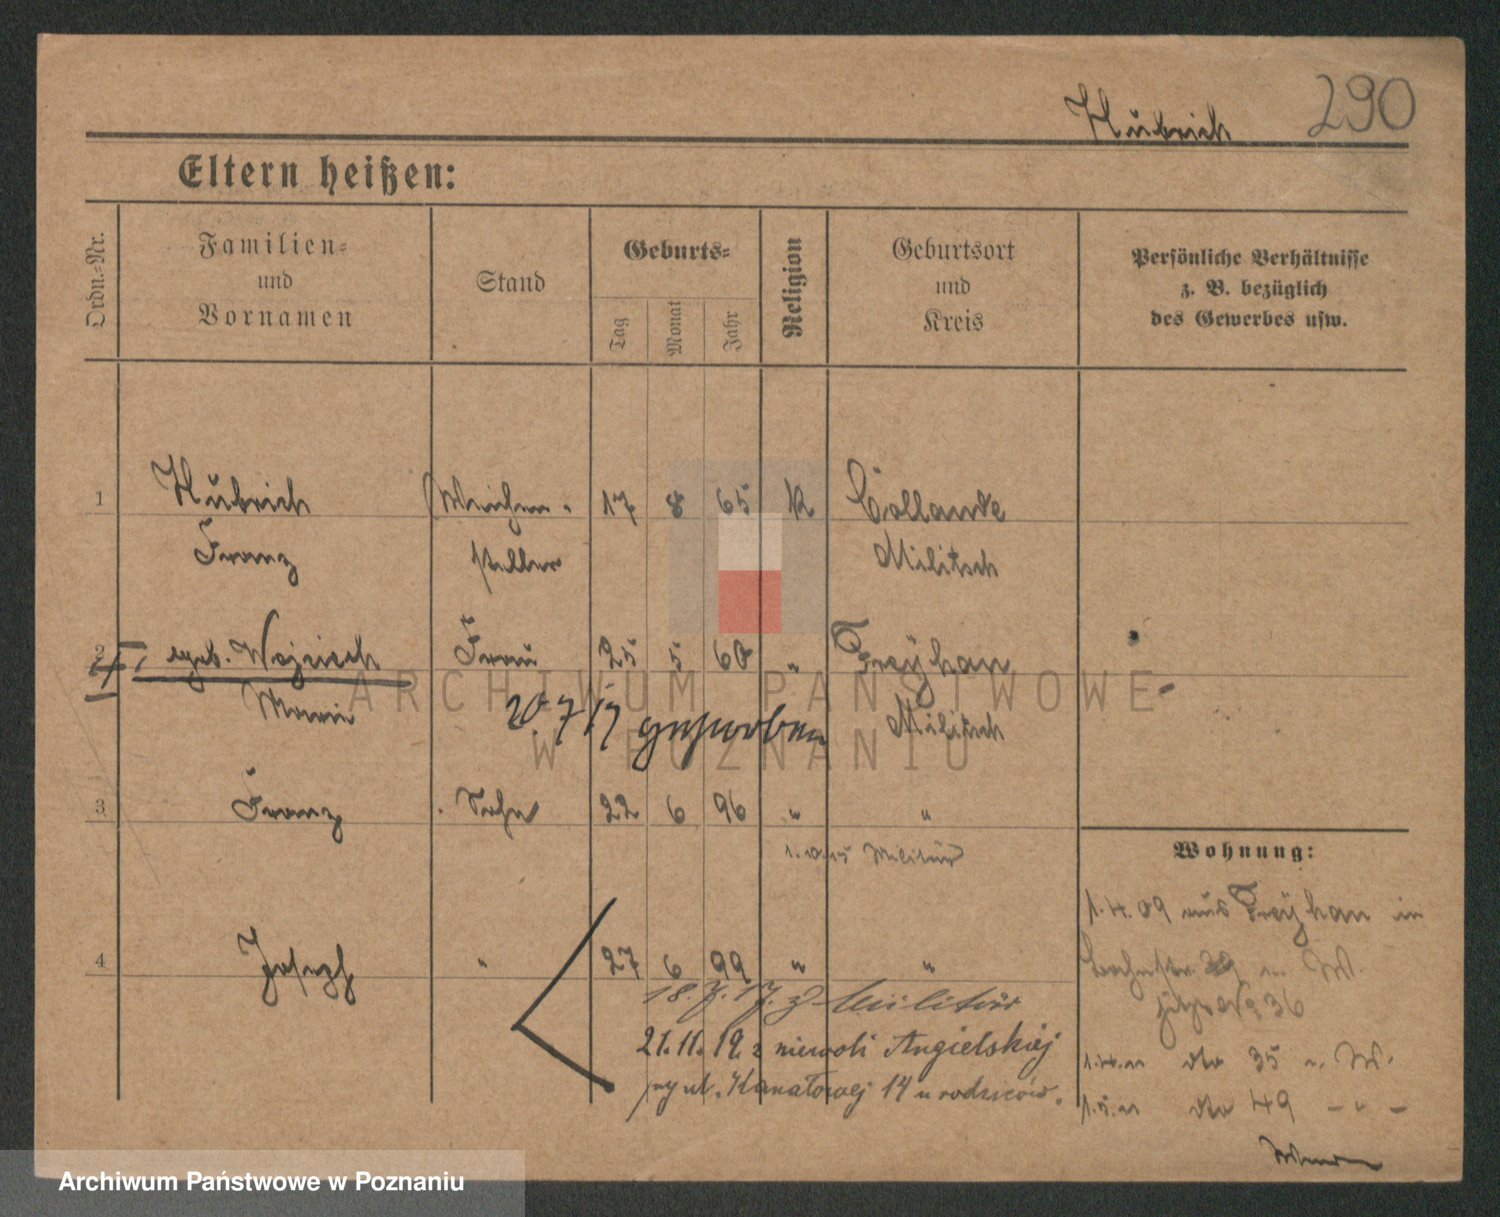 290
Hübrich
Eltern heißen:
Ordn.-Nr.
Familien-
und
Vornamen
Stand
Geburts-
Tag
Monat
Jahr
Religion
Geburtsort
und
Kreis
Persönliche Verhältnisse
z. B. bezüglich
des Gewerbes usw.
1 Hübrich Weichen- 17 8 65 K Collande
Franz steller Militsch
2 geb. Wozniech Frau 25 5 60 " Freÿhan
Marie 20 7 17 gestorben Militsch
3 Franz Sohn 22 6 96 " "
1.10.15 Militär
4 Joseph " 27 6 99 " "
18.7.17. z Militär
21.11.19. z niewoli Angielskiej
przy ul. Kanałowej 14 u rodziców.
Wohnung:
1.4.09 aus Freÿhan in
36
35 W.
49 - " -
ARCHIWUM PAŃSTWOWE
W POZNANIU
Archiwum Państwowe w Poznaniu